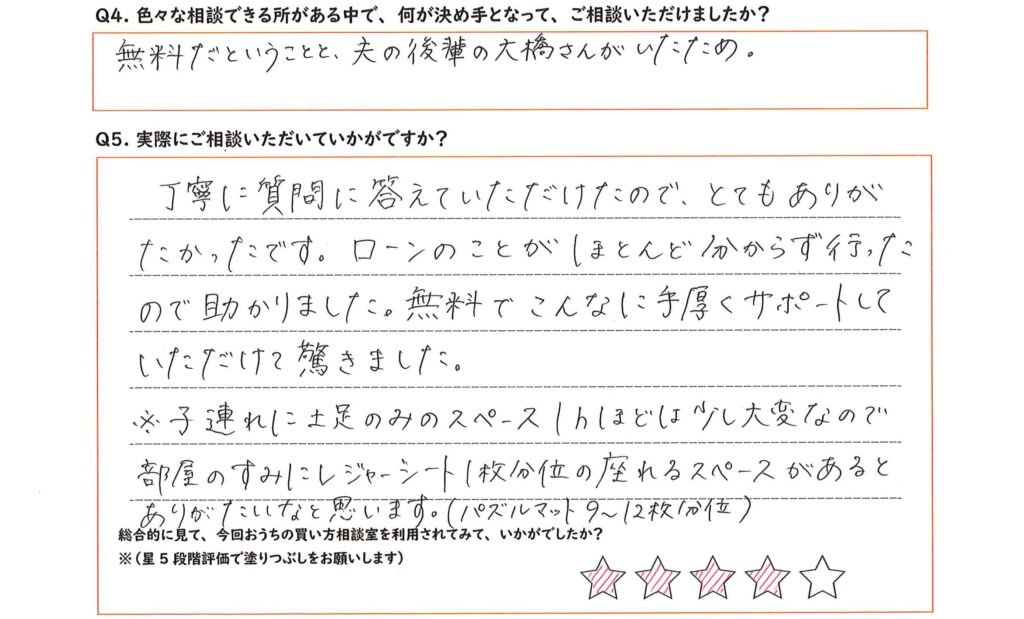 Q4. 色々な相談できる所がある中で、何が決め手となって、ご相談いただけましたか？
無料だということと、夫の後輩の大橋さんがいたため。
Q5. 実際にご相談いただいていかがですか？
丁寧に質問に答えていただけたので、とてもありが
たかったです。ローンのことがほとんど分からず行った
ので助かりました。無料でこんなに手厚くサポートして
いただけて驚きました。
※子連れに土足のみのスペース1hほどは少し大変なので
部屋のすみにレジャーシート1枚分位の座れるスペースがあると
ありがたいなと思います。(パズルマット9～12枚分位)
総合的に見て、今回おうちの買い方相談室を利用されてみて、いかがでしたか？
※（星５段階評価で塗りつぶしをお願いします）